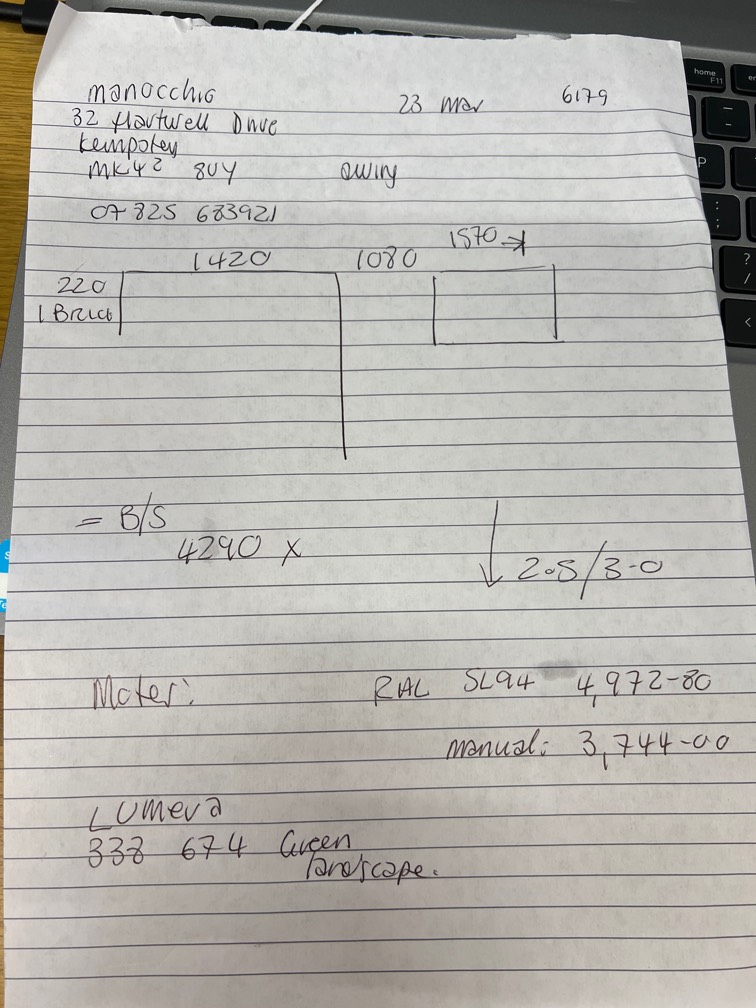 Manocchio 23 Mar 6179
32 Hartwell Drive
Kempstey
MK42 8UY awing
07825 683921
1420 1080 1570
220
1 Brick
= B/S
4290 x 2.5/3-0
Moter: RAL SL94 4,972-80
manual: 3,744-00
Lumera
338 674 Green
landscape.
home
F11
P
?
/
<